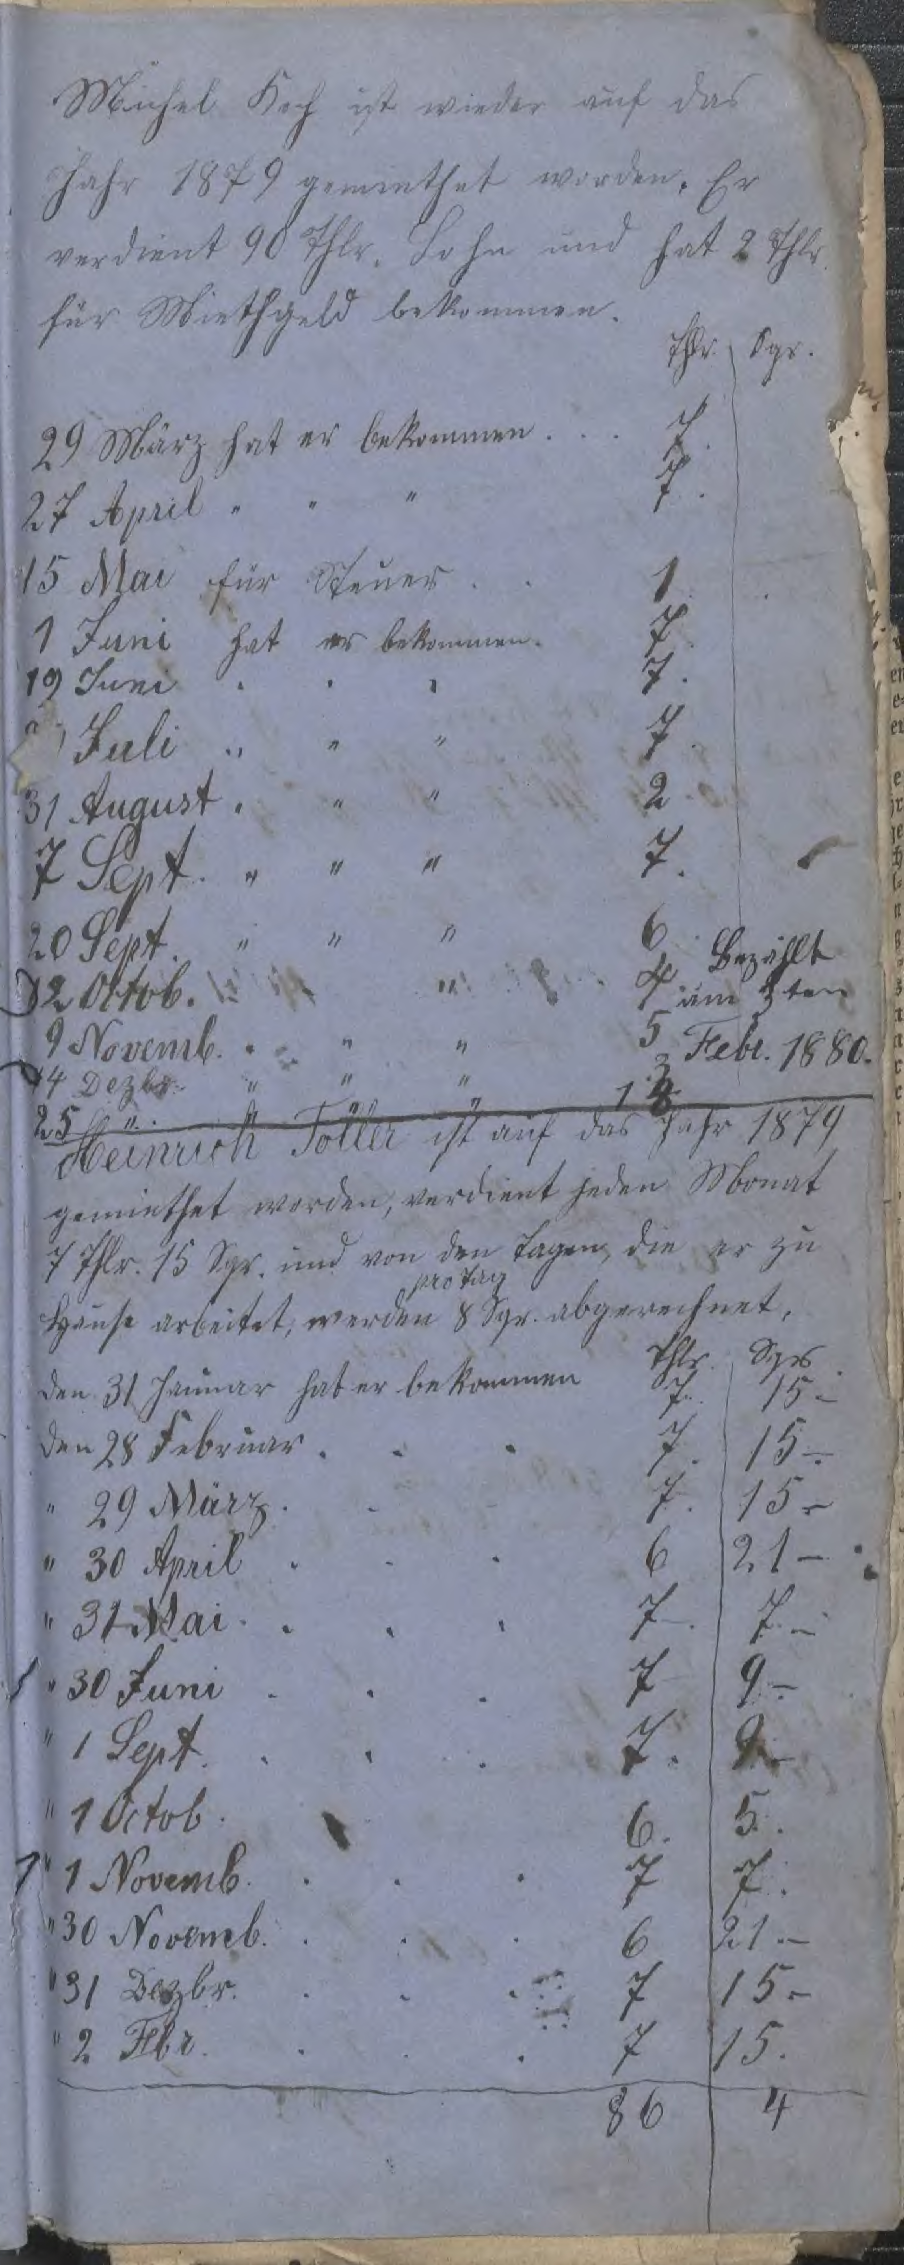 Michel Koch ist wieder auf das
Jahr 1879 gemiethet worden. Er
verdient 90 Thlr. Lohn und hat 2 Thlr.
für Miethgeld bekommen.
Thlr. Sgr.
29 März hat er bekommen . . . 7.
27 April " " " 7.
15 Mai für Steuer . . 1
1 Juni hat er bekommen. 7.
19 Juni " " " 7.
Juli " " " 7.
31 August " " " 2
7 Sept. " " " 7.
20 Sept. " " " 6
12 Octob. " " 4
Bezahlt
am 3ten
Febr. 1880.
9 Novemb. " " " 5
14 Dezbr. " " " 3
25 " " " "
Heinrich Töller ist auf das Jahr 1879
gemiethet worden, verdient jeden Monat
7 Thlr. 15 Sgr. und von den Tagen, die er zu
pro Tag
Hause arbeitet, werden 8 Sgr. abgerechnet.
Thlr. Sgr.
den 31 Januar hat er bekommen 7. 15 -
den 28 Februar . . . 7. 15 -
" 29 März . . 7. 15 -
" 30 April . . . 6 21 -
" 31 Mai . . . 7 - 7 -
" 30 Juni . . . 7 9 -
" 1 Sept. . . . 7. 9 -
" 1 Octob. 6. 5.
" 1 Novemb. . . . 7 7.
" 30 Novemb. . . . 6 21 -
" 31 Dezbr. . . . 7 15 -
" 2 Fbr. . . . 7 15.
86 4